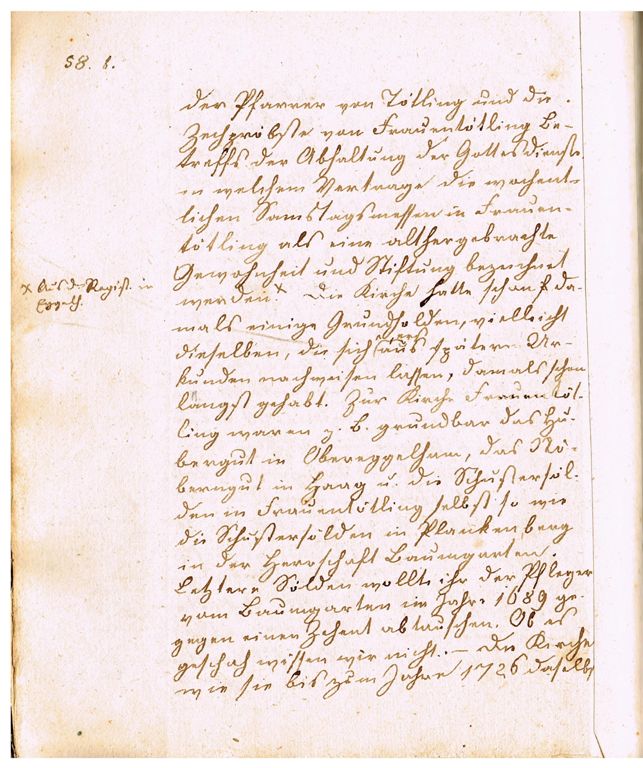 58. 1.
der Pfarrer von Tötling und die
Zechpröbste von Frauentötling Be-
treffs der Abhaltung der Gottesdienste
in welchem Vertrage die wochent-
lichen Samstagsmessen in Frauen-
tötling als eine althergebrachte
Gewohnheit und Stiftung bezeichnet
werden. x Die Kirche hatte schon da-
x Aus d. Regist. in
Eggelh.
mals einige Grundholden, vielleicht
dieselben, die sich aus spätern Ur-
kunden nachweisen lassen, damals schon
längst gehabt. Zur Kirche Frauentöt-
ling waren z. B. grundbar das Hu-
bergut in Obereggelham, das
berngut in Haag u. die Schustersöl-
den in Frauentötling selbst so wie
die Schustersölden in Plankenberg
in der Herrschaft Baumgarten.
Letztere Sölden wollte ihr der Pfleger
vom Baumgarten im Jahre 1689 ge-
gegen einen Zehent abtauschen. Ob es
geschah wissen wir nicht. — Die Kirche
wie sie bis zum Jahre 1726 daselbst